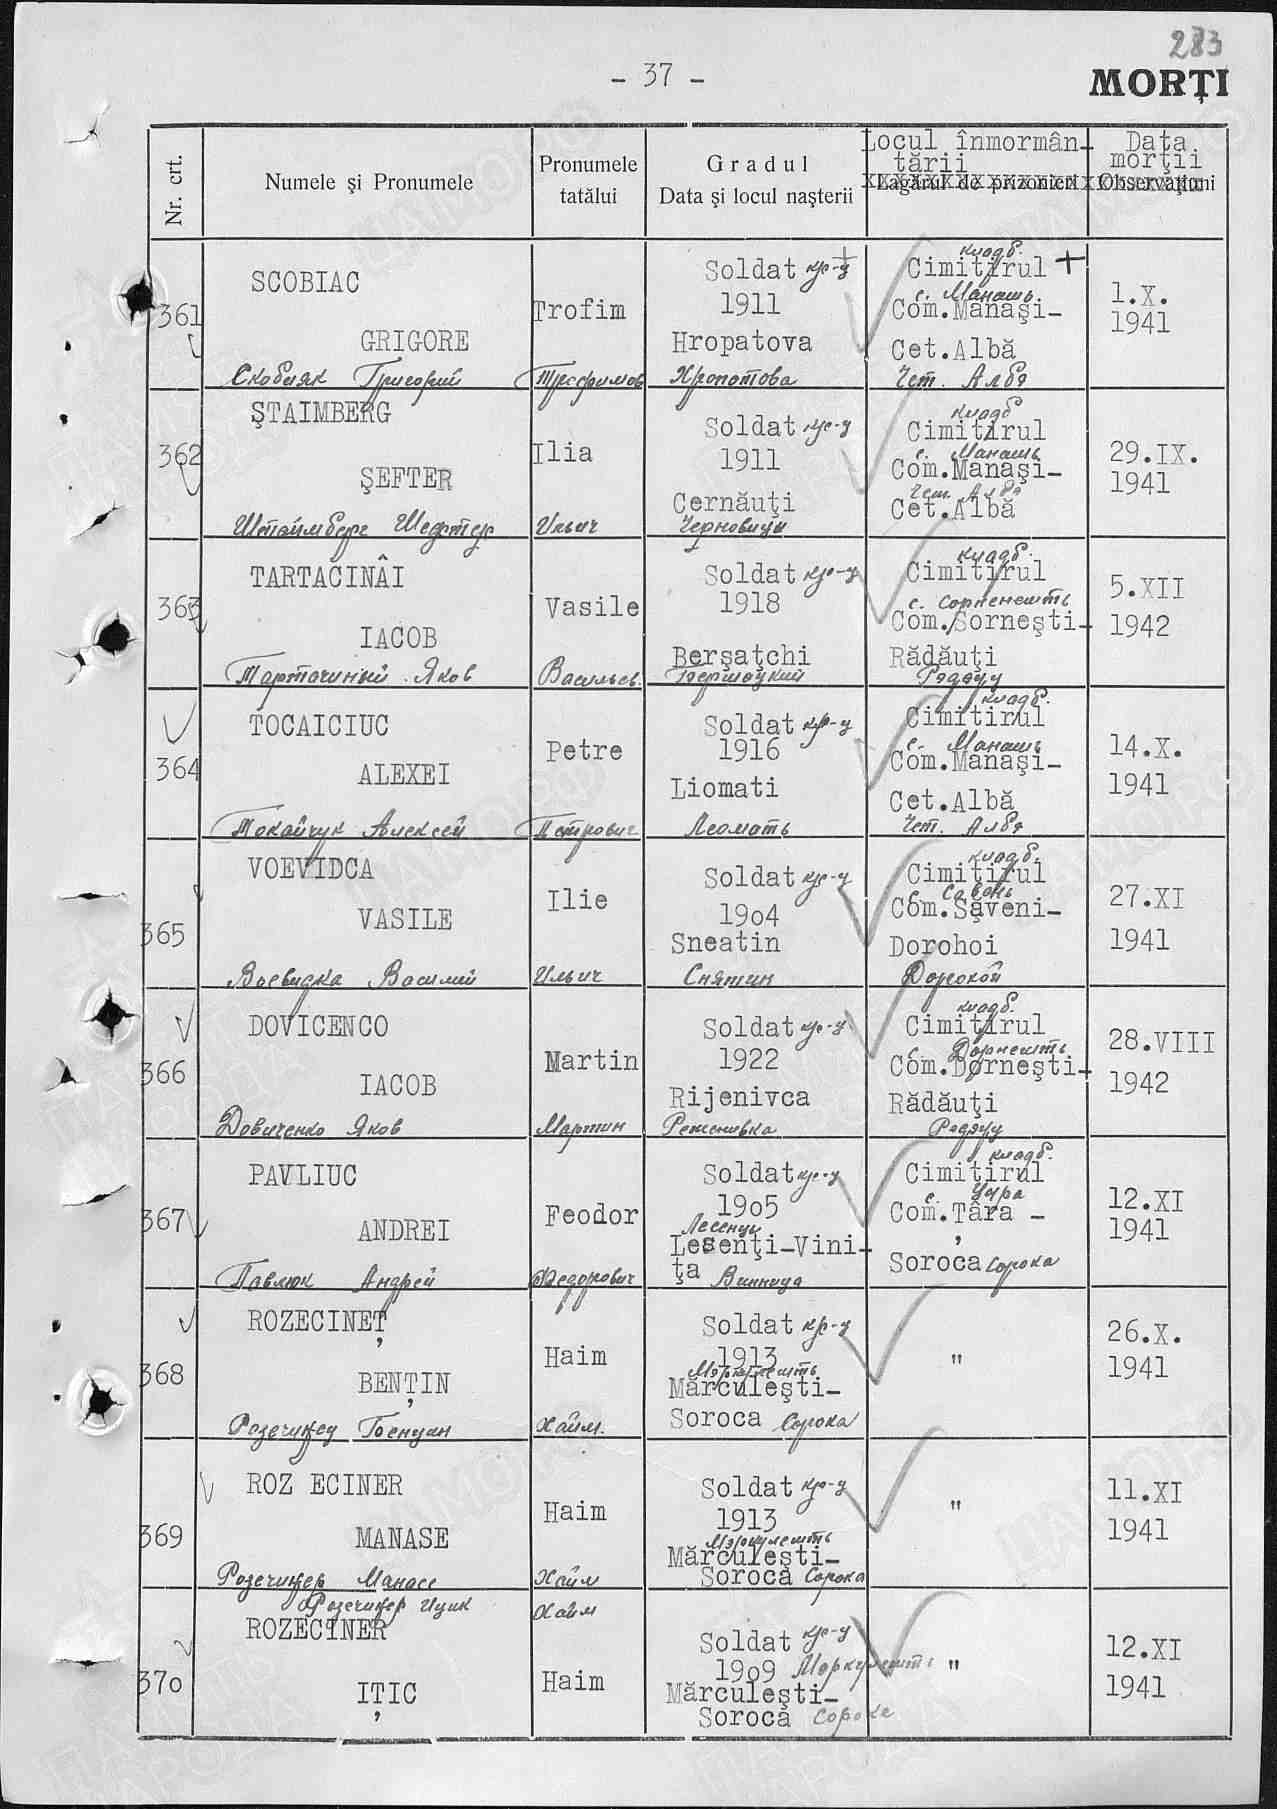 283
- 37 -
MORȚI
Nr. crt.
Numele și Pronumele
Pronumele tatălui
Gradul
Data și locul nașterii
Locul înmormân-
tării
Lagărul de prizonieri
Data
morții
Observațiuni
361
SCOBIAC
GRIGORE
Скобияк Григорий
Trofim
Трофимов
Soldat кр-ц
1911
Hropatova
Хропотова
кладб.
Cimitirul +
с. Манашь
Com.Manași-
Cet.Albă
Чет. Албэ
1.X.
1941
362
ȘTAIMBERG
ȘEFTER
Штаймберг Шефтер
Ilia
Ильич
Soldat кр-ц
1911
Cernăuți
Черновицы
кладб
Cimitirul
с. Манашь
Com.Manași-
Чет. Албэ
Cet.Albă
29.IX.
1941
363
TARTACINÂI
IACOB
Тартачиный Яков
Vasile
Васильев.
Soldat кр-ц
1918
Berșațchi
Бершацкий
кладб.
Cimitirul
Com.Sornești-
Rădăuți
Рэдэуц
5.XII
1942
364
TOCAICIUC
ALEXEI
Токайчук Алексей
Petre
Петрович
Soldat кр-ц
1916
Liomati
Леомать
кладб.
Cimitirul
с. Манашь
Com.Manași-
Cet.Albă
Чет. Албэ
14.X.
1941
365
VOEVIDCA
VASILE
Воевидка Василий
Ilie
Ильич
Soldat кр-ц
19o4
Sneatin
Снятин
кладб.
Cimitirul
с. Савень
Com.Săveni-
Dorohoi
Дорохой
27.XI
1941
366
DOVICENCO
IACOB
Довиченко Яков
Martin
Мартин
Soldat кр-ц
1922
Rijenivca
Реженивка
кладб.
Cimitirul
с. Дорнешть
Com.Dornești-
Rădăuți
Рэдэуц
28.VIII
1942
367
PAVLIUC
ANDREI
Павлюк Андрей
Feodor
Федорович
Soldat кр-ц
19o5
Лесенцы
Lesenți-Vini-
ța Винница
кладб.
Cimitirul
с. Цыра
Com.Țâra -
Soroca Сорока
12.XI
1941
368
ROZECINEȚ
BENȚIN
Розечинец Бенцин
Haim
Хайм.
Soldat кр-ц
1913
Мэркулешть
Mărculești-
Soroca Сорока
"
26.X.
1941
369
ROZ ECINER
MANASE
Розечинер Манасе
Haim
Хайм
Soldat кр-ц
1913
Мэркулешть
Mărculești-
Soroca Сорока
"
11.XI
1941
37o
Розечинер Ицик
ROZECINER
IȚIC
Хайм
Haim
Soldat кр-ц
19o9 Мэркулешть
Mărculești-
Soroca Сороке
"
12.XI
1941